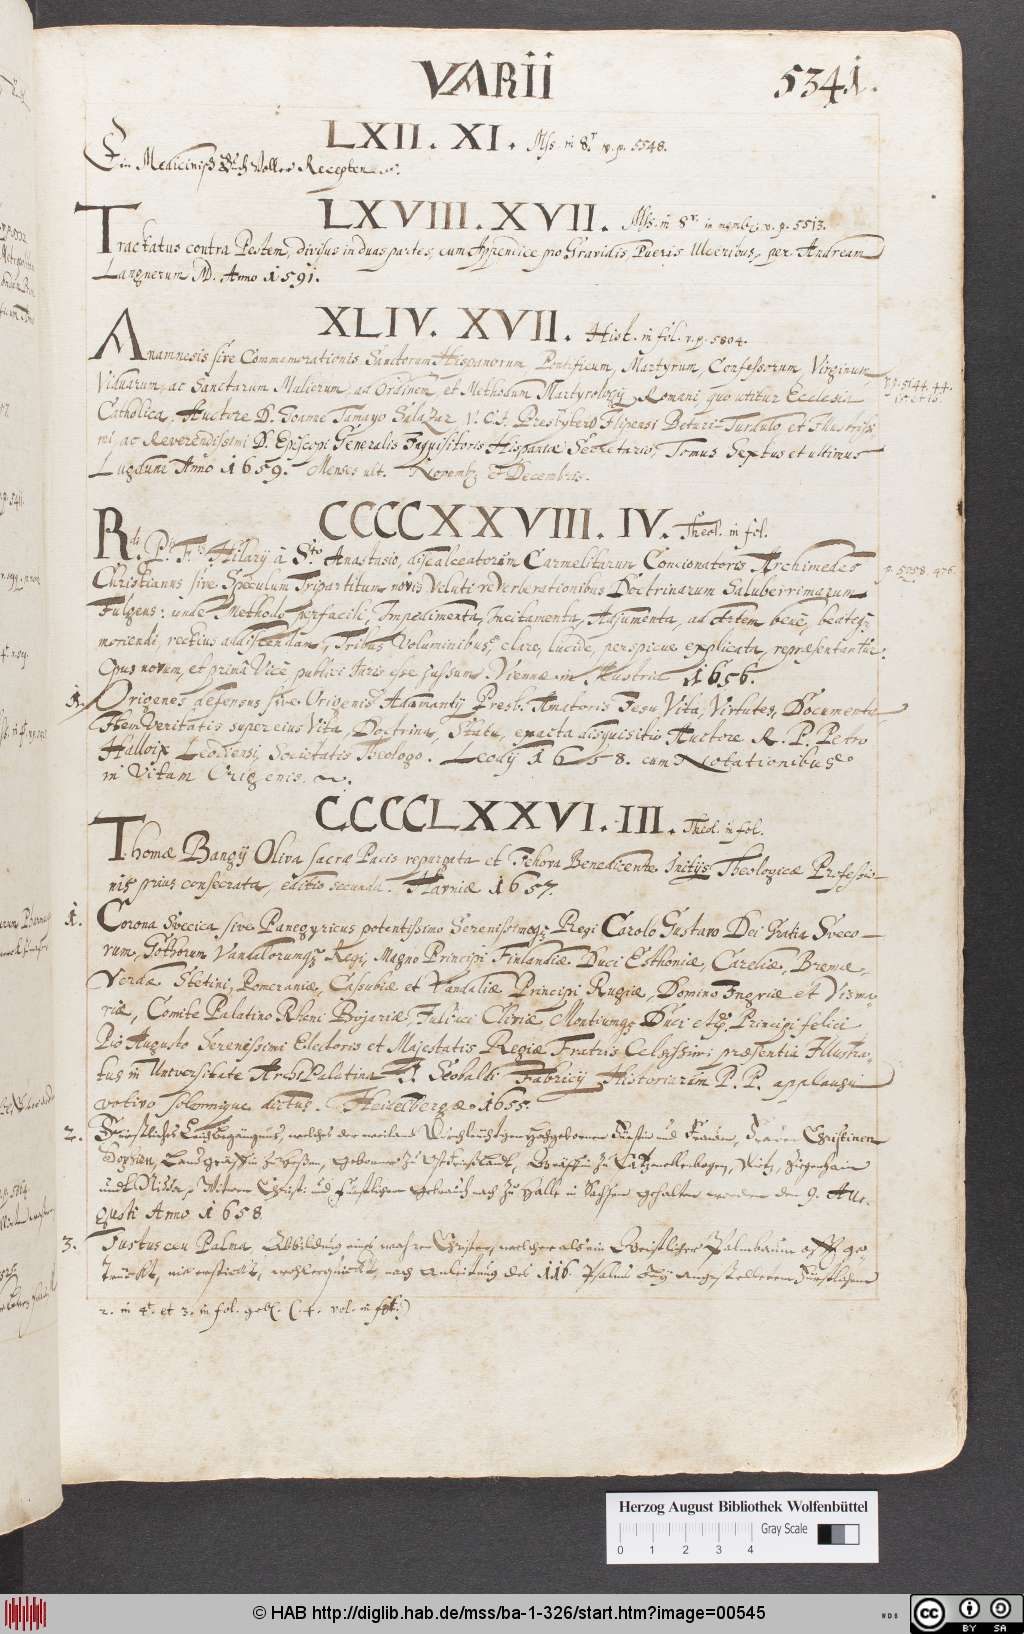 VARII
5341.
LXII. XI. Mss. in 8.r v. p. 5548.
Ein Medicinisch Buch voller Recepten
LXVIII. XVII. Mss. in 8r. in membr. v. p. 5513.
Tractatus contra Pestem, divisus in duas partes, cum Appendice pro Gravidis, Pueris Ulceribus, per Andream
Langnerum D. Anno 1591.
XLIV. XVII. Hist. in fol. v. p. 5804.
Anamnesis sive Commemorationis Sanctorum Hispanorum, Pontificum, Martyrum, Confessorum, Virginum,
Viduarum, ac Sanctarum Mulierum, ad Ordinem, et Methodum Martyrologij Romani quo utitur Ecclesia
p. 5144. 44.
Catholica, Auctore D. Joanne Tamayo Salazar, Presbytero Zlipensi Beturi-Turdulo et Illustriss
mi, ac Reverendissimi D. Episcopi Generalis Inquisitoris Hispaniæ Secretario, Tomus Sextus et ultimus
Lugduni Anno 1659. Menses ult. Novemb. & Decembris.
CCCCXXVIII. IV. Theol. in fol.
Rdi. P. Fris Hilarij à S.to Anastasio, discalceatorum Carmelitarum Concionatoris Archimedes
Christianus sive Speculum Tripartitum novis veluti reverberationibus Doctrinarum Saluberrimarum
p. 5258. 476.
Fulgens: unde Methodo perfacili, Impedimenta, Incitamenta, Adjumenta, ad Artem benè, beateq;
moriendi, rectius addiscendam, Tribus Voluminibus clare, lucide, perspicue explicata, repræsentantur:
Opus novum, et primâ Vice publici Juris esse jussum. Viennæ in Austria 1656.
1. Origenes defensus sive Origenis Adamantij Presb. Amatoris Jesu, Vita, Virtutes, Documenta
Item Veritatis super eius Vita, Doctrina, Statu, exacta disquisitio Auctore R. P. Petro
Halloix Leodiensi, Societatis Theologo. Leodij 1658. cum Notationibus
in Vitam Origenis.
CCCCLXXVI. III. Theol. in fol.
Thomæ Bangij Oliva sacræ Pacis repurgata et Jehova Benedicente Initijs Theologicæ Professio-
nis prius consecrata, editio secunda. Havniæ 1657.
1. Corona Svecica sive Panegyricus potentissimo Serenissimoq; Regi Carolo Gustavo Dei Gratia Sveco-
rum, Gothorum Vandalorumq; Regi, Magno Principi Finlandiæ Duci Esthoniæ, Careliæ, Bremæ,
Verdæ Stetini, Pomeraniæ, Cassubiæ et Vandaliæ Principi Rugiæ, Domino Ingriæ et Wisma-
riæ, Comite Palatino Rheni Bojariæ, Juliaci Cliviæ Montiumq; Duci etc. Principi felici
Pio Augusto Serenissimi Electoris et Majestatis Regiæ Fratris Celsissimi præsentia Illustra-
tus in Universitate ArchiPalatina Seobaldi Fabricij Historiarum P. P. applausu
votivo solennique dictus. Heidelbergæ 1655.
2. Fürstliches Leichbegängnus, welches der weiland Durchleuchtigen Hochgebornen Fürstin und Frauen, Frauen Christinen
Sophien, Landgräffin zu Hessen, geborne zu Ostfrießland, Gräffin zu Catzenellenbogen, Dietz, Ziegenhain
und Nidda, Witwen Christ- und Fürstlichem Gebrauch nach zu Halle in Sachsen gehalten worden den 9. Au-
gusti Anno 1658
3. Justus ceu Palma, Abbildung eines wahren Christen, welcher als ein Geistlicher Palmbaum
nach Anleitung des 116. Psalms
2. in 4.to et 3. in fol. geb. (.4. vol. in fol.)
Herzog August Bibliothek Wolfenbüttel
Gray Scale
0 1 2 3 4
© HAB http://diglib.hab.de/mss/ba-1-326/start.htm?image=00545
WDB
cc BY SA